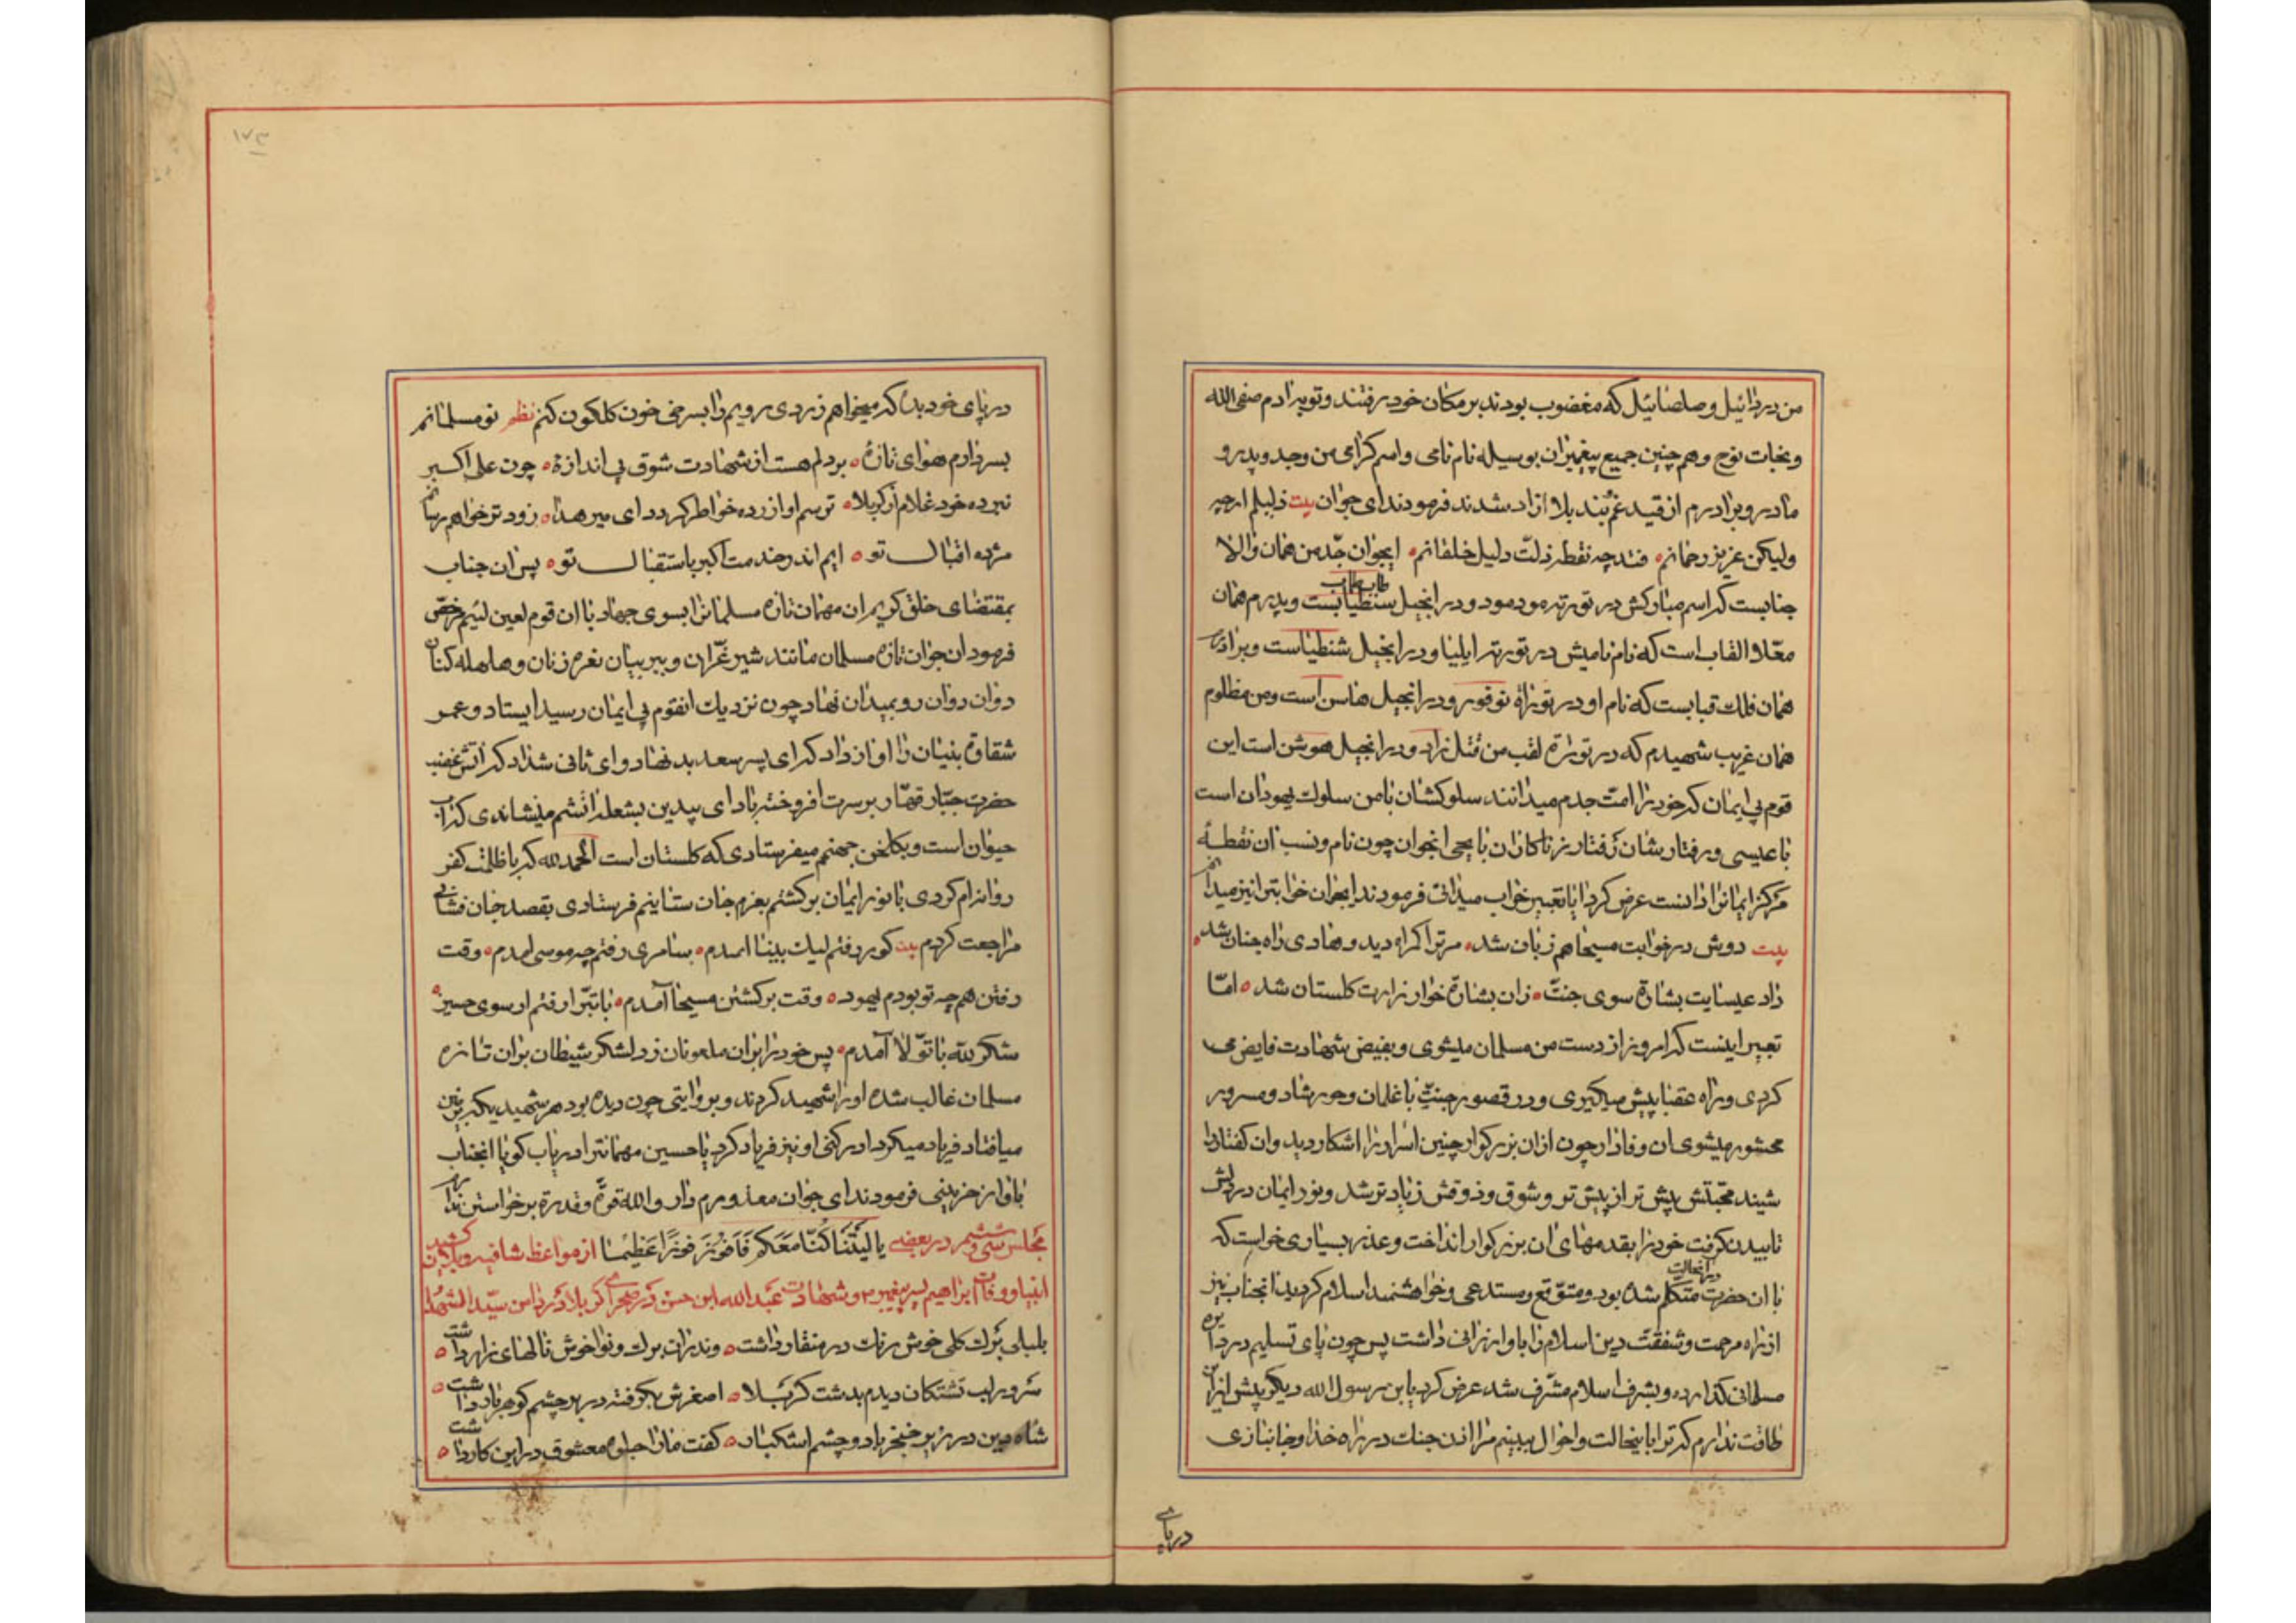 من دردائیل و صلصائیل که مغضوب بودند بر مکان خود رفتند و توبه ادم صفی الله
و نجات نوح و هم چنین جمیع پیغمبران بوسیله نام نامی و اسم کرامی من و جد و پدر و
مادر و برادرم از قید غم و بند بلا ازاد شدند فرمودند ای جوان بیت ذلیلم ارچه
ولیکن عزیز رحمانم فتد چه نقطه ذلت دلیل خلقانم ایجوان جد من همان والا
جنابست که اسم مبارکش در توریة مودمود و در انجیل طاب طاب است و پدرم همان
معلا القاب است که نام نامیش در توریة ایلیا و در انجیل شنطیاست و برادرم
همان فلک قبابست که نام او در توراة نوقور و در انجیل هاسن است و من مظلوم
همان غریب شهیدم که در توراة لقب من قتل زاد و در انجیل هوشن است این
قوم بی ایمان که خود را امت جدم میدانند سلوکشان با من سلوک یهودان است
با عیسی و رفتارشان رفتار زناکاران با یحیی انجوان چون نام و نسب ان نقطهٔ
مرکز ایمانرا دانست عرض کرد ایا تعبیر خواب میدانی فرمودند ایجوان خوابترا نیز میدانم
بیت دوش در خوابت مسیحا هم زبان شد مر ترا کراه دید و هادی راه جنان شد
داد عیسایت بشارة سوی جنت زان بشارة خوار زارت کلستان شد اما
تعبیر اینست که امروز از دست من مسلمان میشوی و بفیض شهادت فایض می
کردی و راه عقبا پیش میکیری و در قصور جنت با غلمان و حور شاد و مسرور
محشور میشوی ان وفادار چون ازان بزرکوار چنین اسرار را اشکار دید وان کفتار را
شنید محبتش بیش تر از پیش تر و شوق و ذوقش زیاد تر شد و نور ایمان در دلش
تابیدن کرفت خود را بقدمهای ان بزرکوار انداخت و عذر بسیاری خواست که
با ان حضرت در انحالت متکلم شده بود و متوقع و مستدعی و خواهشمند اسلام کردید انجناب نیز
از راه مرحمت و شفقت دین اسلام را باو ارزانی داشت پس چون پای تسلیم در دایره
مسلمانی کذارده و بشرف اسلام مشرف شد عرض کرد یا بن رسول الله دیکر پیش ازین
طاقت ندارم که ترا باینحالت و احوال ببینم مرا اذن جنک در راه خدا و جانبازی
در پای
۱۷۳
در پای خود بده که میخواهم زردی رویم را بسرخی خون کلکون کنم نظم نو مسلمانم
بسر دارم هوای تازهٔ بر دلم هست از شهادت شوق بی اندازهٔ چون علی اکبر
نبرده خود غلام از کربلا ترسم او ازرده خواطر کردد ای میر هدا زود تر خواهم رسانم
مژده اقبال تو ایم اندر خدمت اکبر باستقبال تو پس ان جناب
بمقتضای خلق کریم ان مهمان تازه مسلمانرا بسوی جهاد با ان قوم لعین لئیم مرخص
فرمود ان جوان تازه مسلمان مانند شیر غران و ببر بیان نعره زنان و هلهله کنان
دوان دوان رو بمیدان نهاد چون نزدیک انقوم بی ایمان رسید ایستاد و عمر
شقاوة بنیان را اواز داد که ای پسر سعد بد نهاد و ای ثانی شداد که اتش غضب
حضرت جبار قهار بر سرت افروخته باد ای بیدین بشعله اتشم مینشاندی که آب
حیوان است و بکلخن جهنم میفرستادی که کلستان است الحمد لله که با ظلمت کفر
روانه ام کردی با نور ایمان برکشتم بعزم جان ستانیم فرستادی بقصد جان فشانی
مراجعت کردم بیت کور رفتم لیک بینا امدم سامری رفتم چه موسی امدم وقت
رفتن همچه تو بودم یهود وقت برکشتن مسیحا آمدم با تبرا رفتم از سوی حسین
شکر لله با تولا آمدم پس خود را بران ملعونان زد لشکر شیطان بران تازه
مسلمان غالب شده او را شهید کردند و بروایتی چون دیده بود هر شهیدیکه بر زمین
میافتاد فریاد میکرد ادرکنی او نیز فریاد کرد یا حسین مهمانترا دریاب کویا انجناب
باواز حزینی فرمودند ای جوان معذورم دار والله قوة و قدرة برخواستن ندارم
مجلس سی و ششم در بعضی یا لیتنا کنا معکم فافوز فوزا عظیما از مواعظ شافیه
انبیا و وفات ابراهیم پسر پیغمبر و شهادت عبد الله ابن حسن در صحرای کربلا در دامن سید الشهدا
بلبلی برک کلی خوش رنک در منقار داشت وندران برک و نوا خوش نالهای زار داشت
سرور لب تشنکان دیدم بدشت کربلا اصغرش بکرفته در بر چشم کوهر بار داشت
شاه دین در زیر خنجر باد و چشم اشکبار کفت مارا جلوه معشوق در این کار داشت